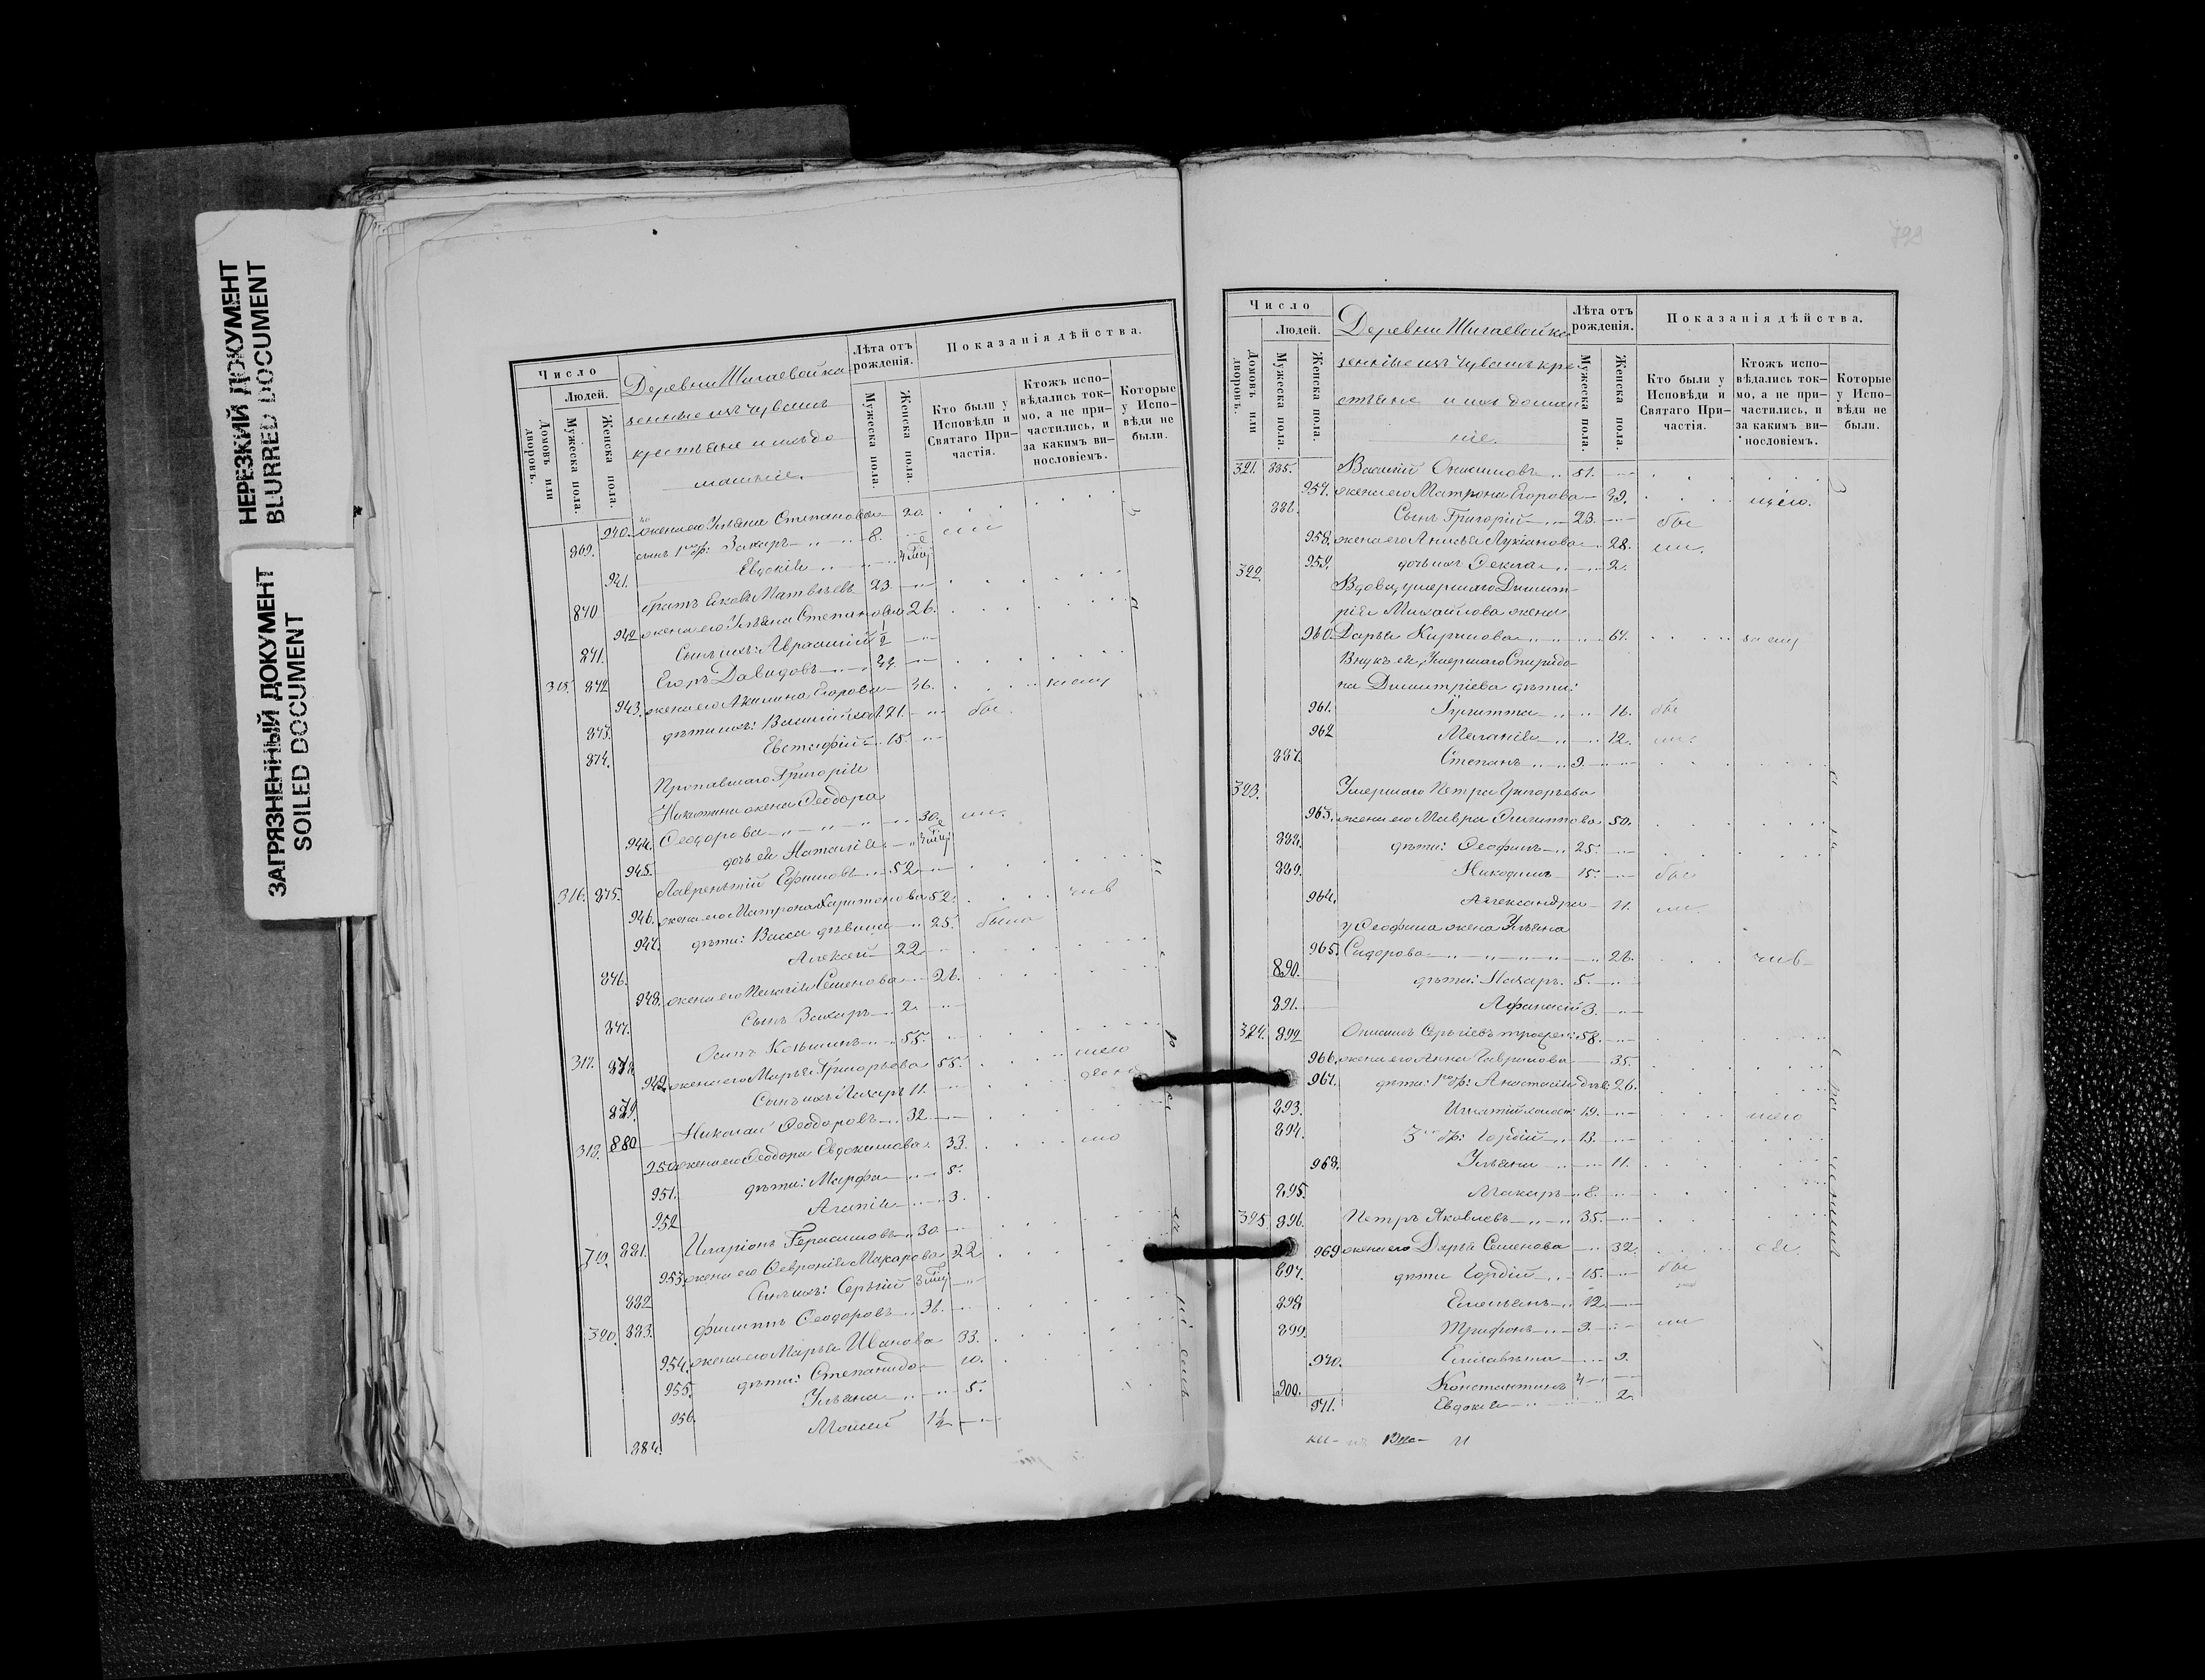 НЕРЕЗКИЙ ДОКУМЕНТ
BLURRED DOCUMENT
ЗАГРЯЗНЕННЫЙ ДОКУМЕНТ
SOILED DOCUMENT
Число
Людей.
Домовъ или дворовъ.
Мужеска пола.
Женска пола.
Деревни Шигаевой ка
зенные изъ чувашъ
крестьяне и ихъ до
машніе.
Лѣта отъ рожденія.
Мужеска пола.
Женска пола.
Показанія дѣйства.
Кто были у Исповѣди и Святаго Причастія.
Ктожъ исповѣдались токмо, а не причастились, и за какимъ винословіемъ.
Которые у Исповѣди не были.
940. жена его Ульяна Степанова 20.
869. сынъ 1го бр: Захаръ 8.
941. Евдокія
870 братъ Яковъ Матвѣевъ 23
942 жена его Ульяна Степанова 26.
871. Сынъ ихъ: Аврамій ½
315. 872 Егоръ Давидовъ
943. жена его Акилина Егорова 36.
873. дѣти ихъ: Василій хол. 21.
874. Евстафій 15.
Пропавшаго Григорія
Никитина жена Ѳеодора
944. Ѳеодорова 30.
945. дочь ея Наталія
316. 875. Лаврентій Ефимовъ 52
946. жена его Матрона Харитонова 52.
947. дѣти: Васса дѣвица 25. была
876. Алексѣй 22
948. жена его Пелагія Семенова 26.
877. Сынъ Захаръ 2.
317. 878 Осипъ Козьминъ 55.
949. жена его Марья Григорьева 55.
879. Сынъ ихъ Лазарь 11.
318. 880 Николай Ѳеодоровъ 32
950 жена его Ѳеодора Евдокимова 33.
951. дѣти: Марфа 5.
952 Агапія 3.
319. 881. Иларіонъ Герасимовъ 30
953. жена его Февронія Макарова 22
882 Сынъ ихъ: Сергій
320. 883. Филиппъ Ѳеодоровъ 31.
954. жена его Марья Иванова 33.
955. дѣти: Степанида 10.
956. Ульяна 5.
884. Моисей 1½
793
Число
Людей.
Домовъ или дворовъ.
Мужеска пола.
Женска пола.
Деревни Шигаевой ка
зенные изъ чувашъ кре
стьяне и ихъ домаш
ніе.
Лѣта отъ рожденія.
Мужеска пола.
Женска пола.
Показанія дѣйства.
Кто были у Исповѣди и Святаго Причастія.
Ктожъ исповѣдались токмо, а не причастились, и за какимъ винословіемъ.
Которые у Исповѣди не были.
321. 885. Василій Онисимовъ 51.
957. жена его Матрона Егорова 39.
886. Сынъ Григорій 23.
958. жена его Анисья Лукіанова 28.
959. дочь ихъ Ѳекла 2.
322 Вдова, умершаго Димит-
рія Михайлова жена
960. Дарья Кирилова 67.
Внукъ ея, Умершаго Спиридо-
на Димитріева дѣти:
961. Іулитта 16.
962 Меланія 12.
887. Степанъ 9.
323. Умершаго Петра Григорьева
963. жена его Мавра Филиппова 50.
888. дѣти: Ѳеофилъ 25.
889. Никодимъ 15.
964. Александра 11.
у Ѳеофила жена Ульяна
965. Сидорова 26.
890. дѣти: Назаръ 5.
891. Афанасій 3.
324. 892 Онисимъ Сергіевъ 58.
966. жена его Анна Гаврилова 35.
967. дѣти: 1го бр: Анастасія дѣв. 26.
893. Игнатій холост. 19.
894. 3го бр: Гордій 13.
968. Ульяна 11.
895. Макаръ 8.
325 896. Петръ Яковлевъ 35.
969 жена его Дарья Семенова 32.
897. дѣти Гордій 15.
898 Емельянъ 12
899. Трифонъ 9.
970. Елизавета 9.
900. Константинъ 4
971. Евдокія 2.